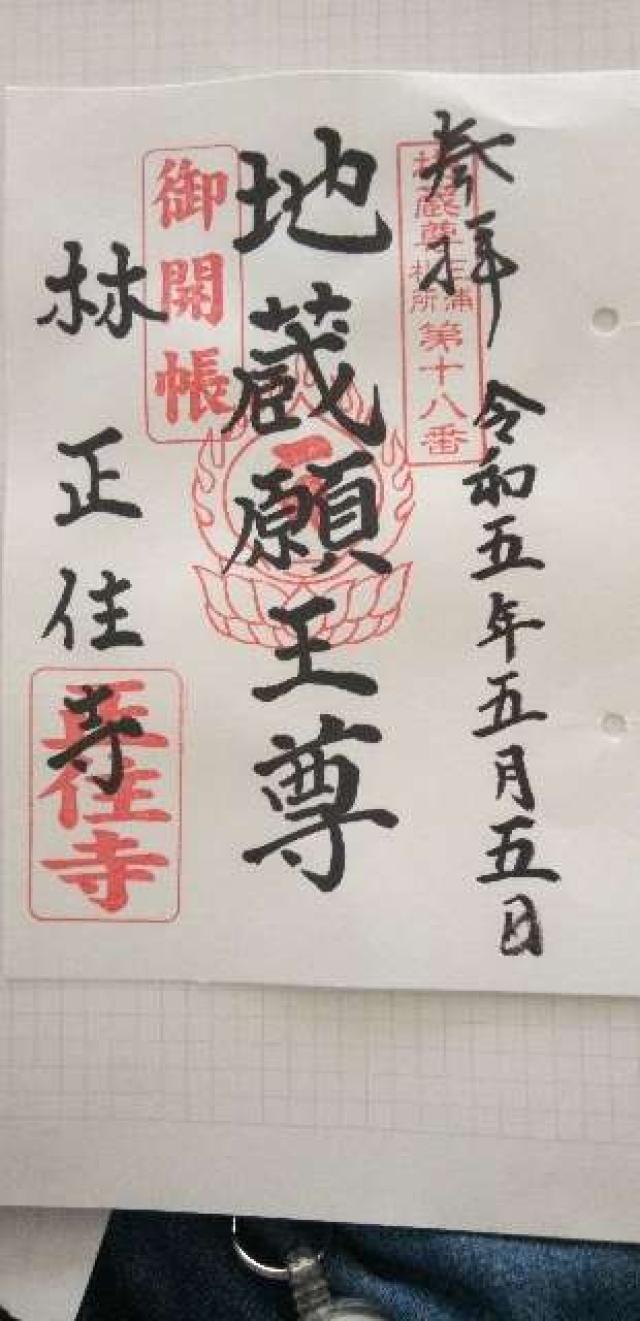 奉拝 令和五年五月五日
地蔵尊三浦札所第十八番
地蔵願王尊
御開帳
林 正住寺
正住寺